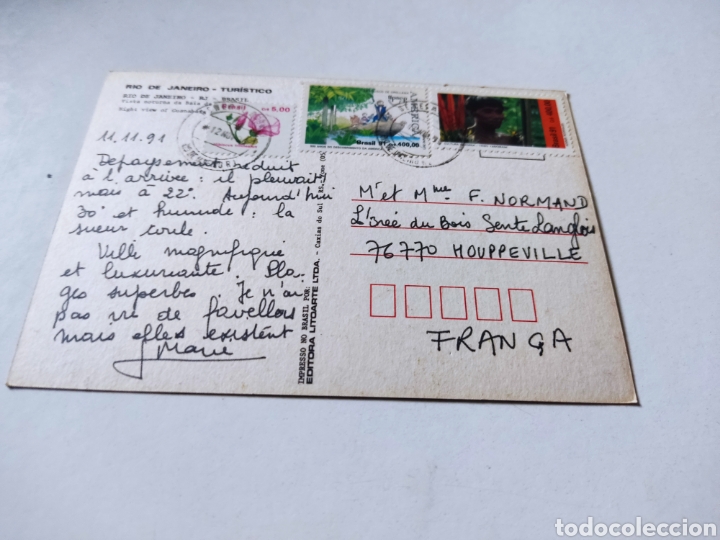 RIO DE JANEIRO - TURÍSTICO
RIO DE JANEIRO - RJ - BRASIL
Vista noturna da Baia de
Night view of Guanabara
Brasil 5,00
Brasil 91 400,00
AMERICA
11.11.91
Depaysement réduit
à l'arrivée : il pleuvait
mais à 22°. Aujourd'hui
30° et humide : la
sueur coule.
Ville magnifique
et luxuriante. Pla
ges superbes Je n'ai
pas vu de favellas
mais elles existent
Marie
IMPRESSO NO BRASIL POR:
EDITORA LITOARTE LTDA. - Caxias do Sul - RS - Fone
Mr et Mme F. NORMAND
L'Orée du Bois Sente Langlois
76770 HOUPPEVILLE
FRANÇA
todocoleccion